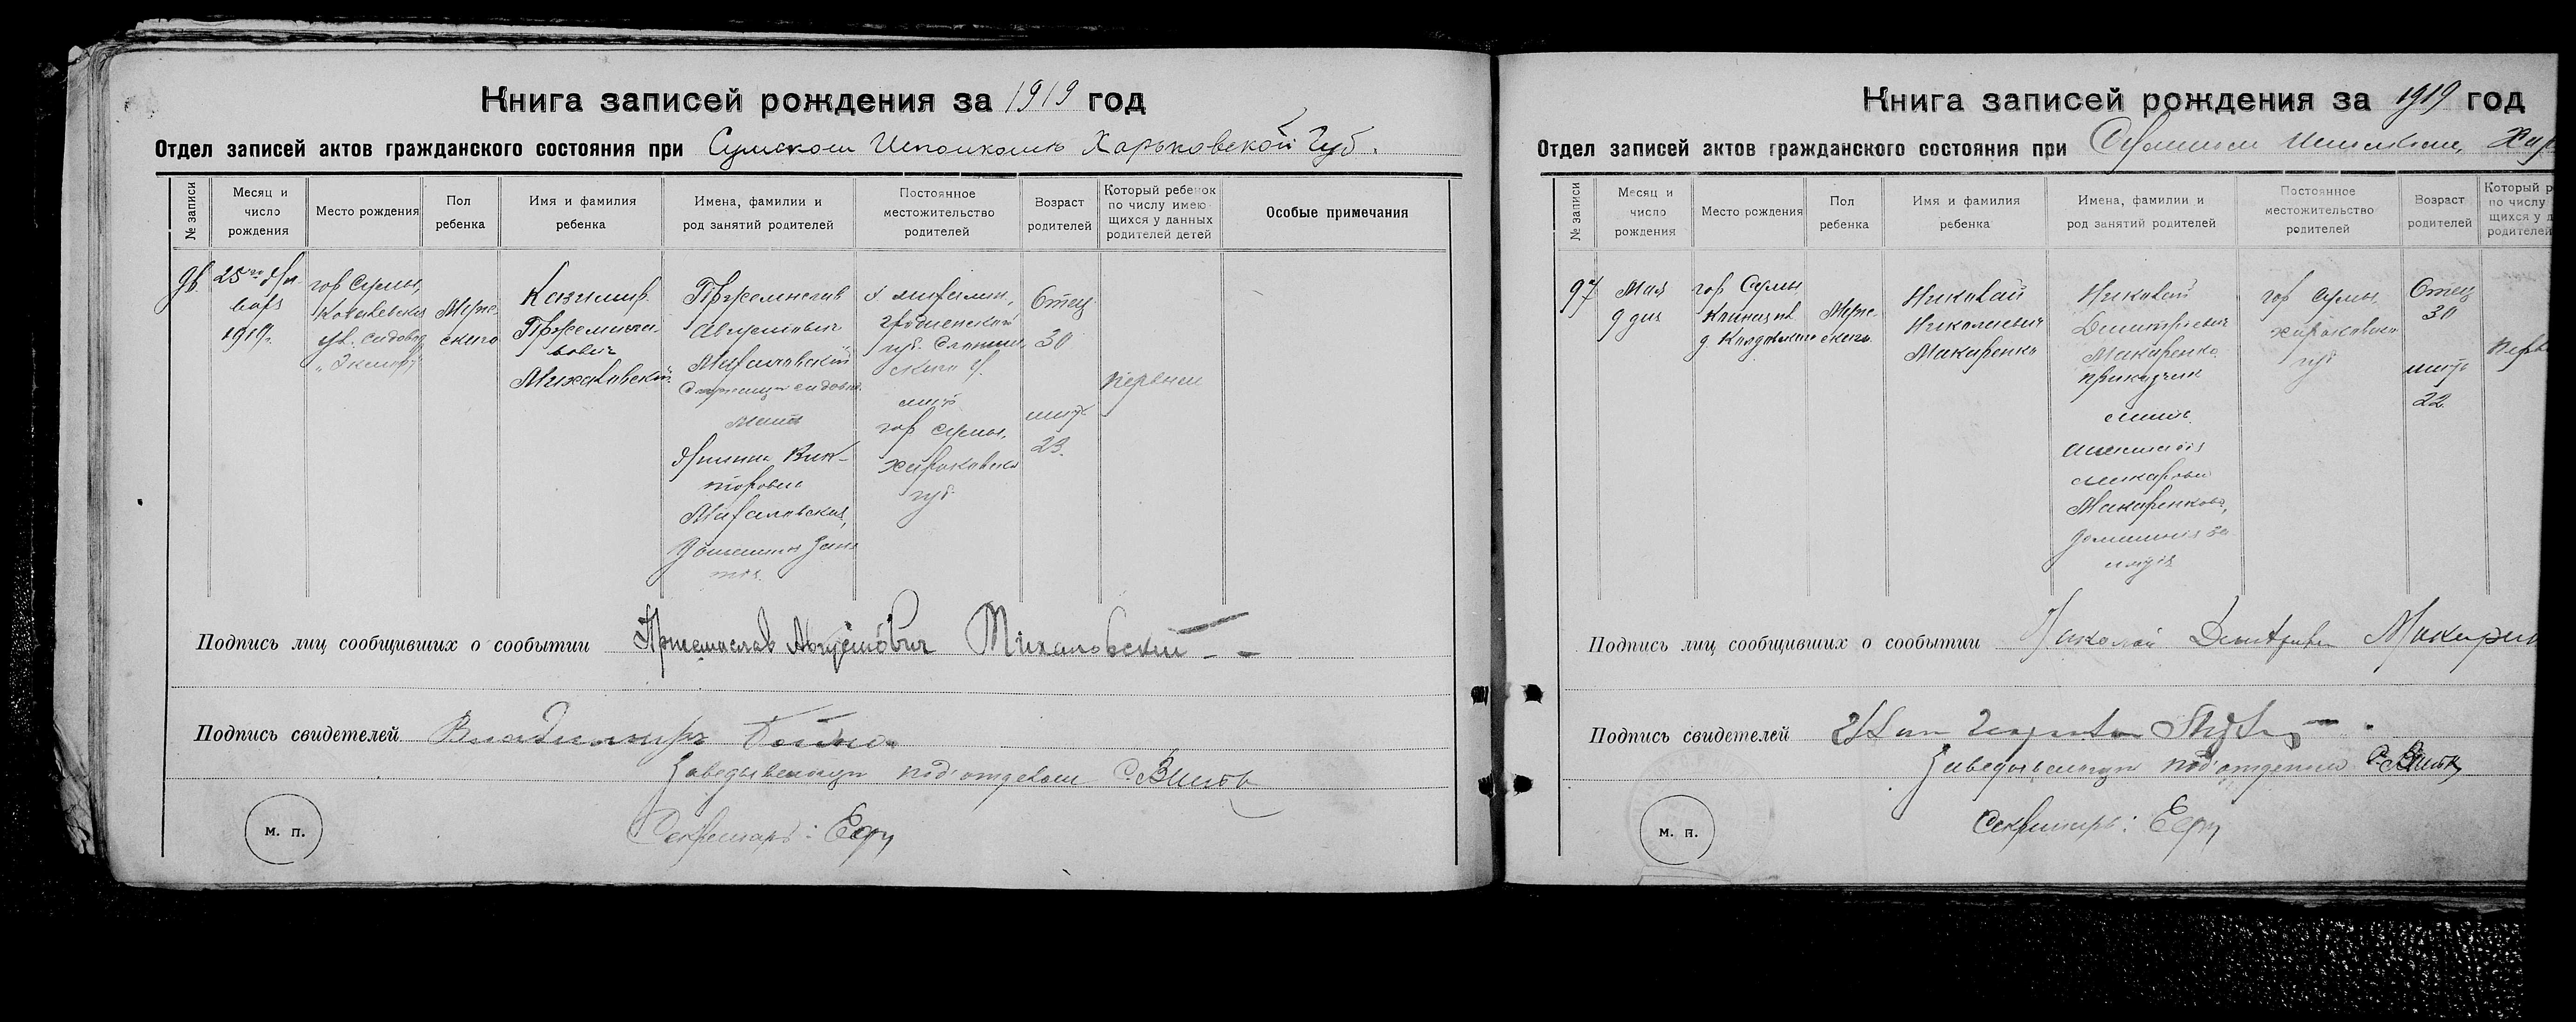 Книга записей рождения за 1919 год
Отдел записей актов гражданского состояния при Сумском Исполкоме Харьковской Губ.
№ записи
Месяц и
число
рождения
Место рождения
Пол
ребенка
Имя и фамилия
ребенка
Имена, фамилии и
род занятий родителей
Постоянное
местожительство
родителей
Возраст
родителей
Который ребенок
по числу имею-
щихся у данных
родителей детей
Особые примечания
96
25го Ян-
варя
1919г.
гор Сумы,
Ковалевская
ул. садовод
Муже-
ского
Казимир
Пржемисла-
вович
Михаловский
Пржемислав
Августович
Михаловский
мать
Янина Вик-
торовна
Михаловская,
Гродненской
губ. Слоним-
ского у.
мать
гор Сумы,
Харьковской
губ.
Отец
30
мать
23.
Первый
Подпись лиц сообщивших о сообытии Пржемислав Августович Михаловский
Подпись свидетелей Владимир
Заведывающий под'отделом
м. п.
Секретарь:
Книга записей рождения за 1919 год
Отдел записей актов гражданского состояния при Сумском Исполкоме, Хар
№ записи
Месяц и
число
рождения
Место рождения
Пол
ребенка
Имя и фамилия
ребенка
Имена, фамилии и
род занятий родителей
Постоянное
местожительство
родителей
Возраст
родителей
Который р
по числу
щихся у д
родителей
97
Мая
9 дня
гор Сумы
Муже-
ского
Николай
Николаевич
Макаренко
Николай
Дмитриевич
Макаренко
приказчик
мать
Макаровна
Макаренкова,
домашния за-
нятия
гор Сумы
Харьковской
губ
Отец
30
мать
22.
Перв
Подпись лиц сообщивших о сообытии Николай Дмитриевич Макарен
Подпись свидетелей
Заведывающий под'отделом
м. п.
Секретарь: